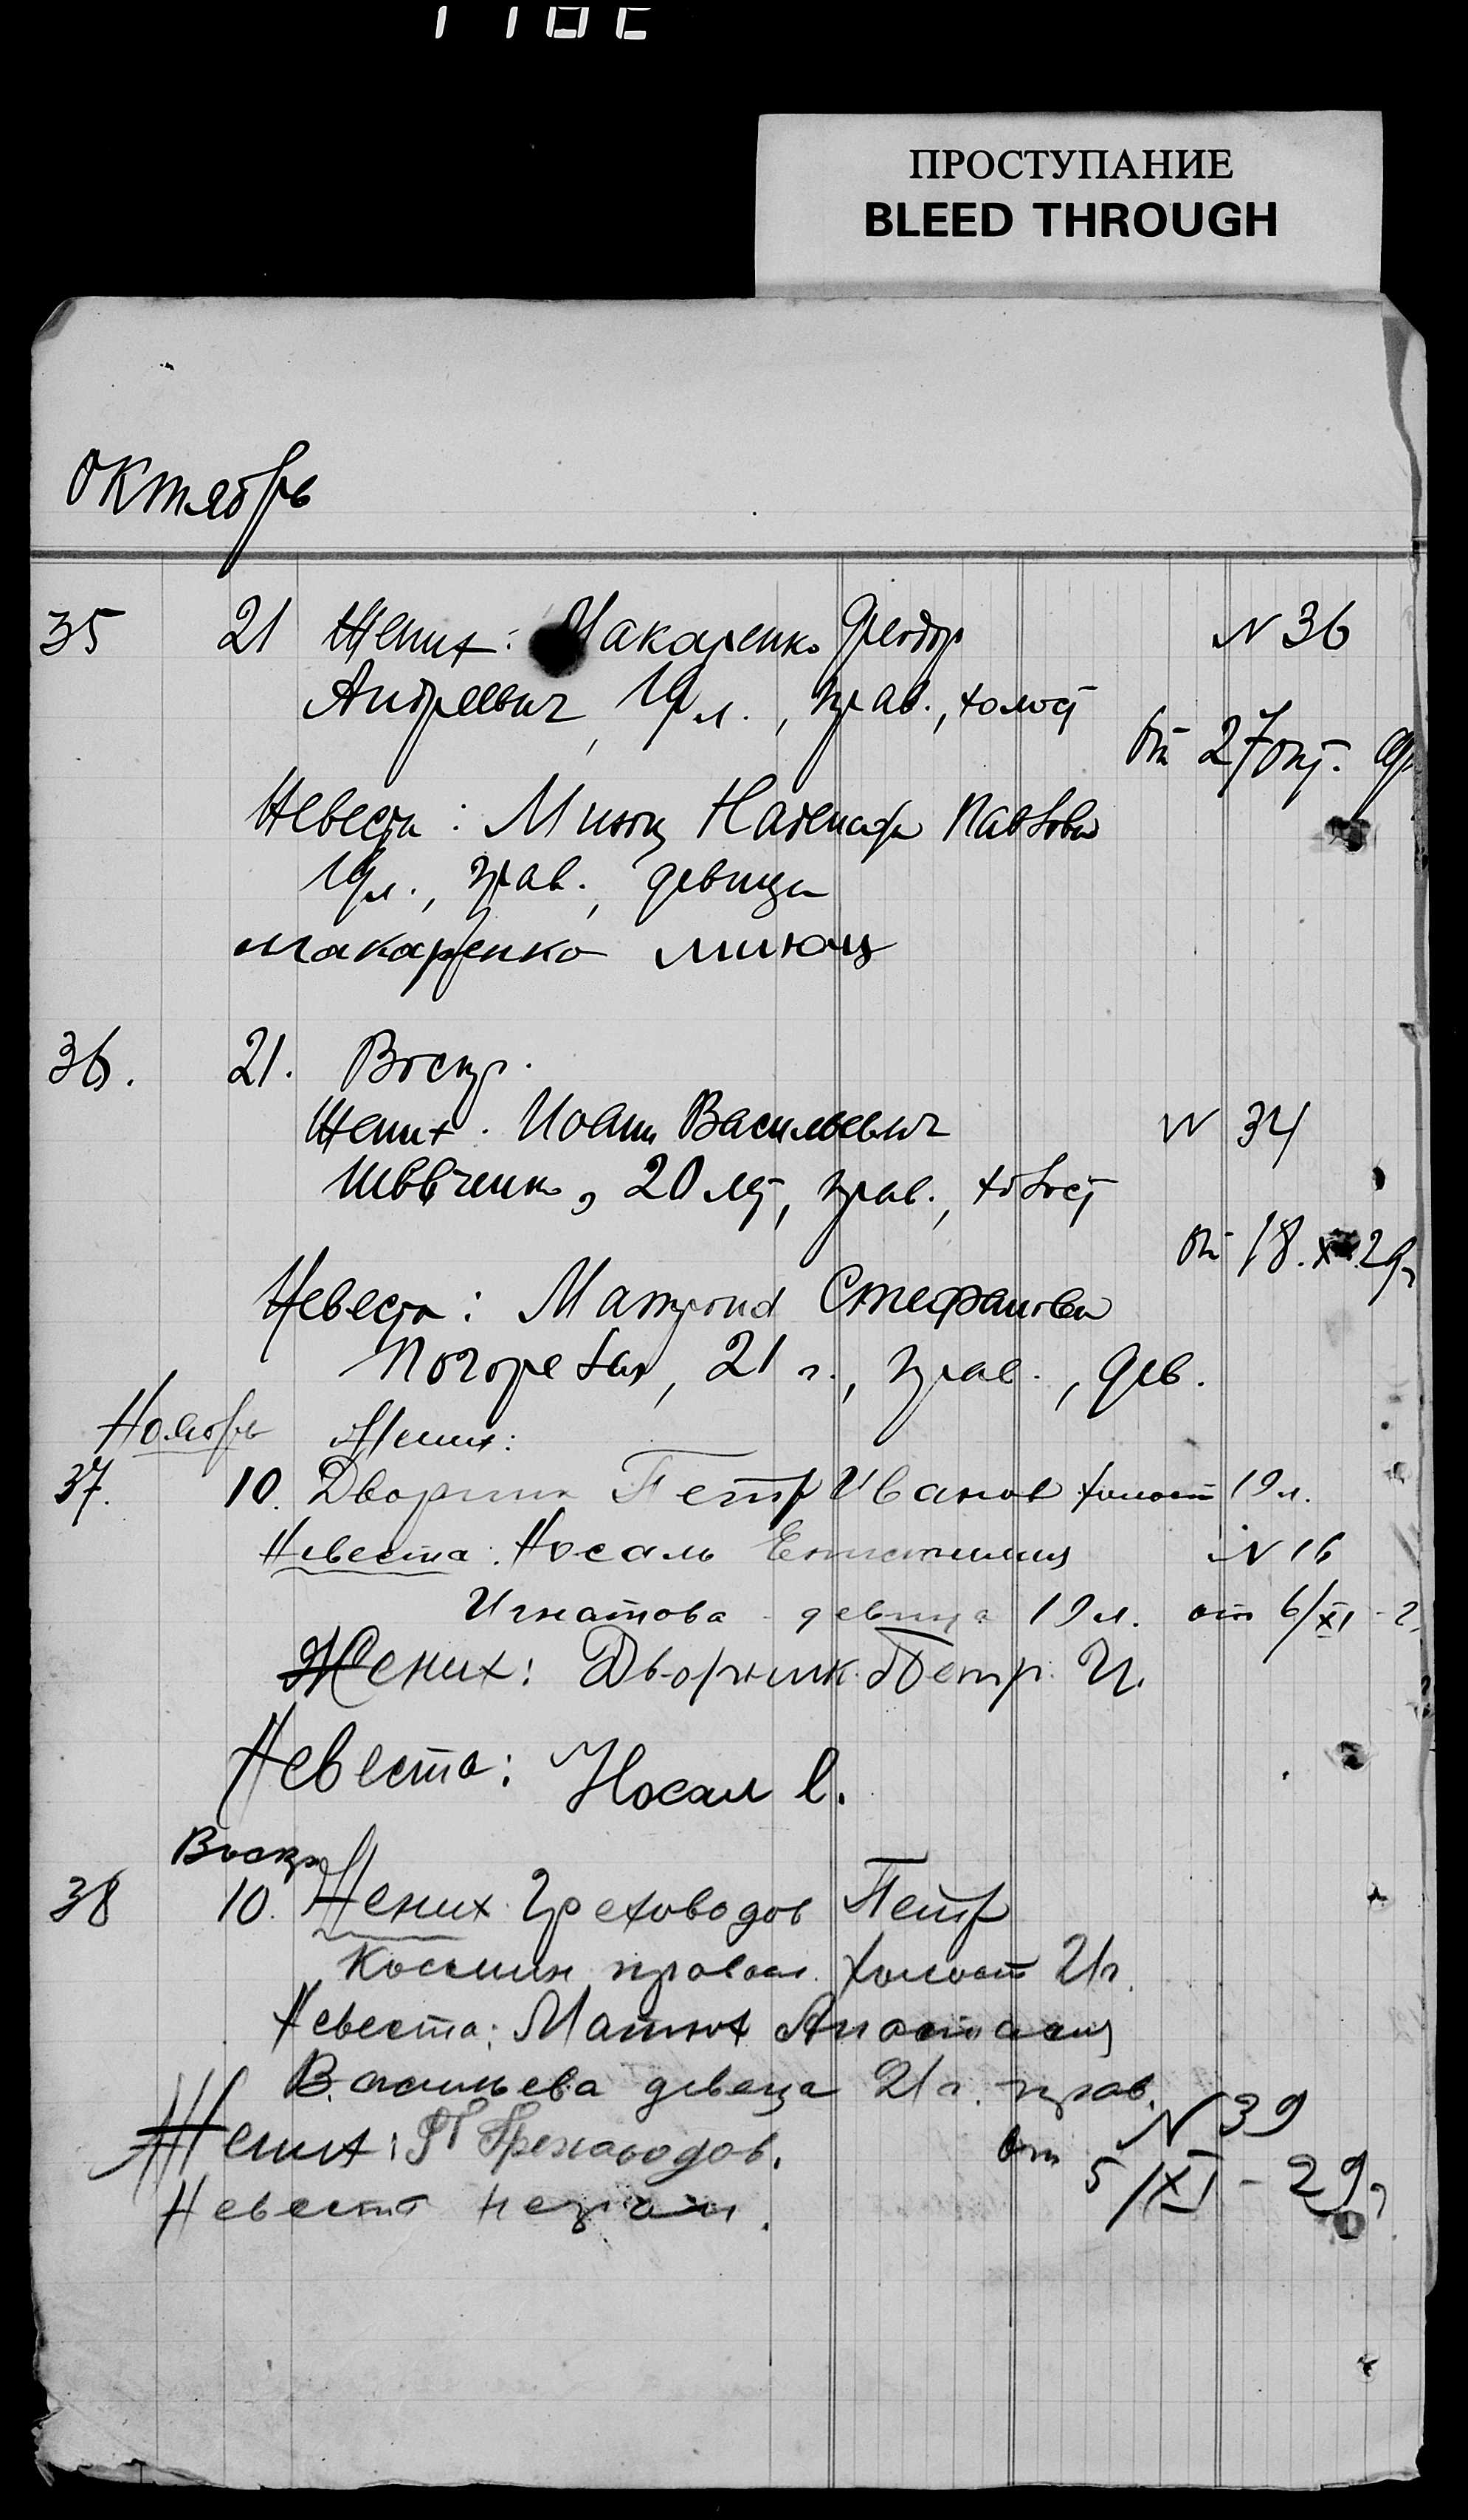 ПРОСТУПАНИЕ
BLEED THROUGH
Октябрь
35 21 Жених: Макаренко Феодор N 36
Андреевич, 19 л., прав., холост
от 27 окт.
Невеста: Минюц Надежда Павлова
19 л., прав., девица
Макаренко Минюц
36. 21. Воскр.
Жених. Иоанн Васильевич N 34
Шевченко, 20 лет, прав., холост
от 18. X 29 г
Невеста: Матрона Стефанова
Погорелая, 21 г., прав., дев.
Ноябрь Жених:
37. 10. Дворник Петр Иванов холост 19 л.
Невеста: Носаль N 16
Игнатова девица 19 л. от 6/XI - 2
Жених: Дворник Петр И.
Невеста: Носал Е.
Воскр
38 10. Жених Греховодов Петр
Космин правосл. холост 21 г.
Невеста: Матюх Анастасия
Васильева девица 21 г. прав.
N 39
Жених: П Греховодов. от 5/XI - 29 г
Невеста неграм.